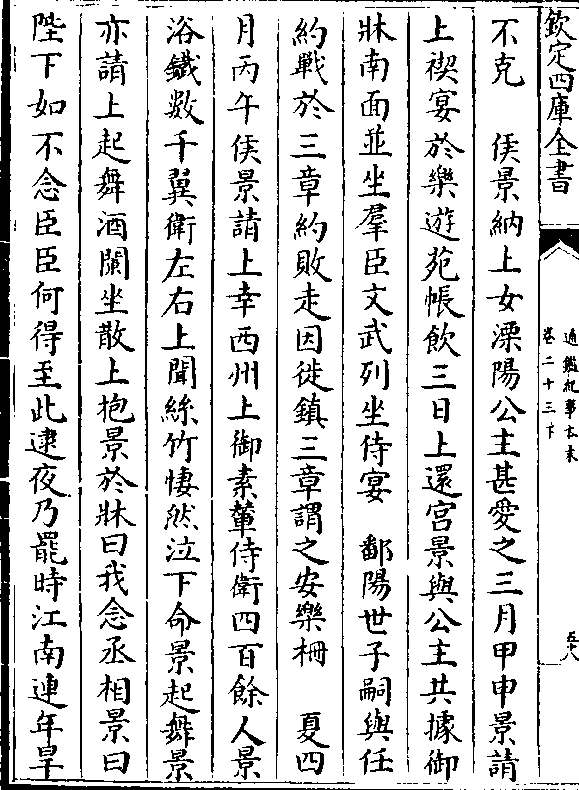 欽定四庫全書
通鑑紀事本末
卷二十三下
五十八
不克　侯景納上女溧陽公主甚愛之三月甲申景請
上禊宴於樂遊苑帳飲三日上還宮景與公主共據御
牀南面並坐羣臣文武列坐侍宴　鄱陽世子嗣與任
約戰於三章約敗走因徙鎮三章謂之安樂柵　夏四
月丙午侯景請上幸西州上御素輦侍衛四百餘人景
浴鐵數千翼衛左右上聞絲竹悽然泣下命景起舞景
亦請上起舞酒闌坐散上抱景於牀曰我念丞相景曰
陛下如不念臣臣何得至此逮夜乃罷時江南連年旱